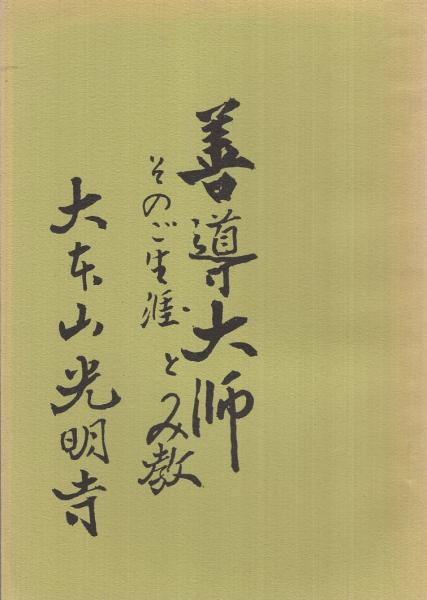 善導大師
そのご生涯とみ教
大本山光明寺